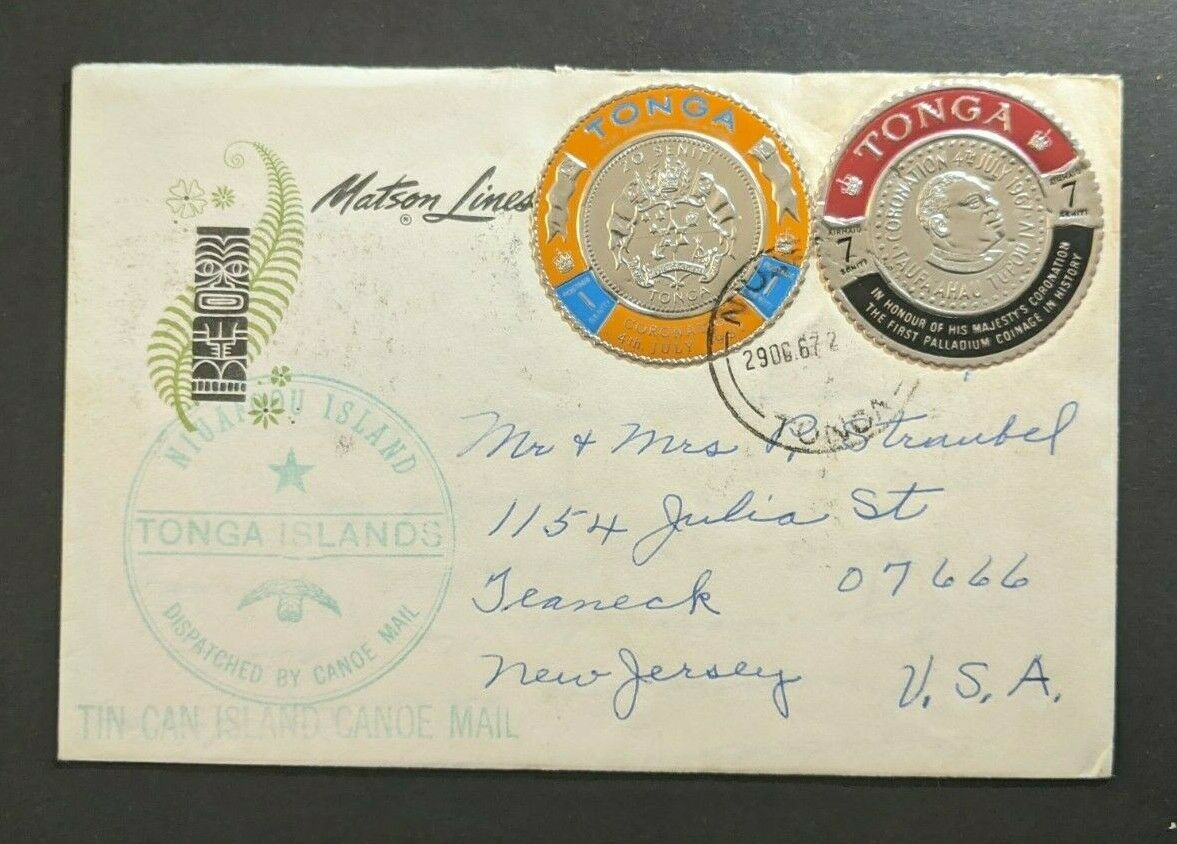 Matson Lines
®
TONGA
20 SENITI
TONGA
POSTAGE
1
SENITI
POSTAGE
1
4th JULY
TONGA
CORONATION 4th JULY 1967
TAUFA'AHAU TUPOU IV
AIRMAIL
7
SENITI
AIRMAIL
7
SENITI
IN HONOUR OF HIS MAJESTY'S CORONATION
THE FIRST PALLADIUM COINAGE IN HISTORY
29DE.67 2
TONGA
Mr & Mrs P. Straubel
1154 Julia St
Teaneck 07666
New Jersey U.S.A.
NIUAFOOU ISLAND
TONGA ISLANDS
DISPATCHED BY CANOE MAIL
TIN CAN ISLAND CANOE MAIL